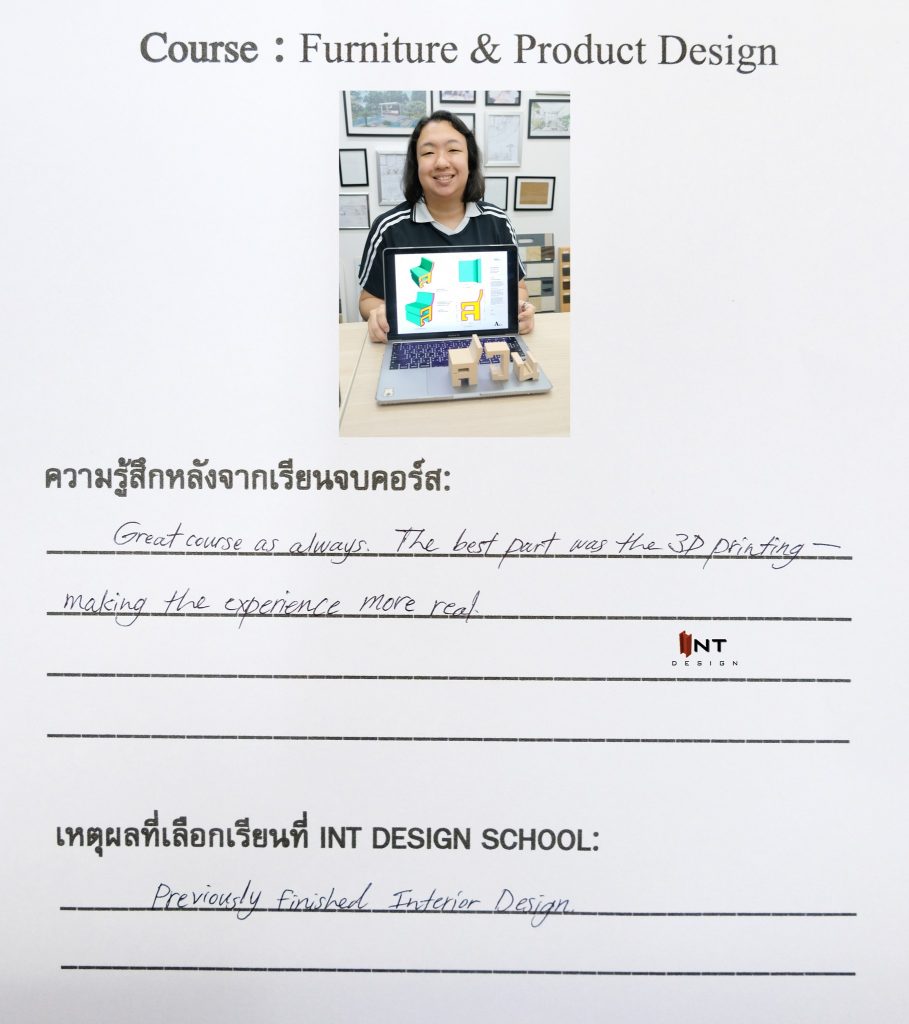 Course : Furniture & Product Design
ความรู้สึกหลังจากเรียนจบคอร์ส:
Great course as always. The best part was the 3D printing —
making the experience more real.
INT
DESIGN
เหตุผลที่เลือกเรียนที่ INT DESIGN SCHOOL:
Previously finished Interior Design.